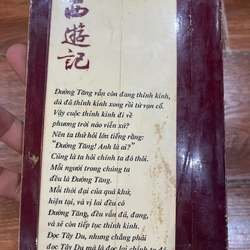 西
遊
記
Đường Tăng vẫn còn đang thỉnh kinh,
đã đã thỉnh kinh xong rồi từ vạn cổ.
Vậy cuộc thỉnh kinh đi về
phương trời nào viễn xứ?
Nên ta thử hỏi lớn tiếng rằng:
"Đường Tăng! Anh là ai?"
Cùng là ta hỏi chính ta đó thôi.
Mỗi người trong chúng ta
đều là Đường Tăng.
Mỗi thời đại của quá khứ,
hiện tại, và vị lai đều có
Đường Tăng, đều vẫn đã, đang,
và sẽ còn tiếp tục thỉnh kinh.
Đọc Tây Du, nhưng chẳng phải
đọc Tây Du mà là đọc lại chính ta đó